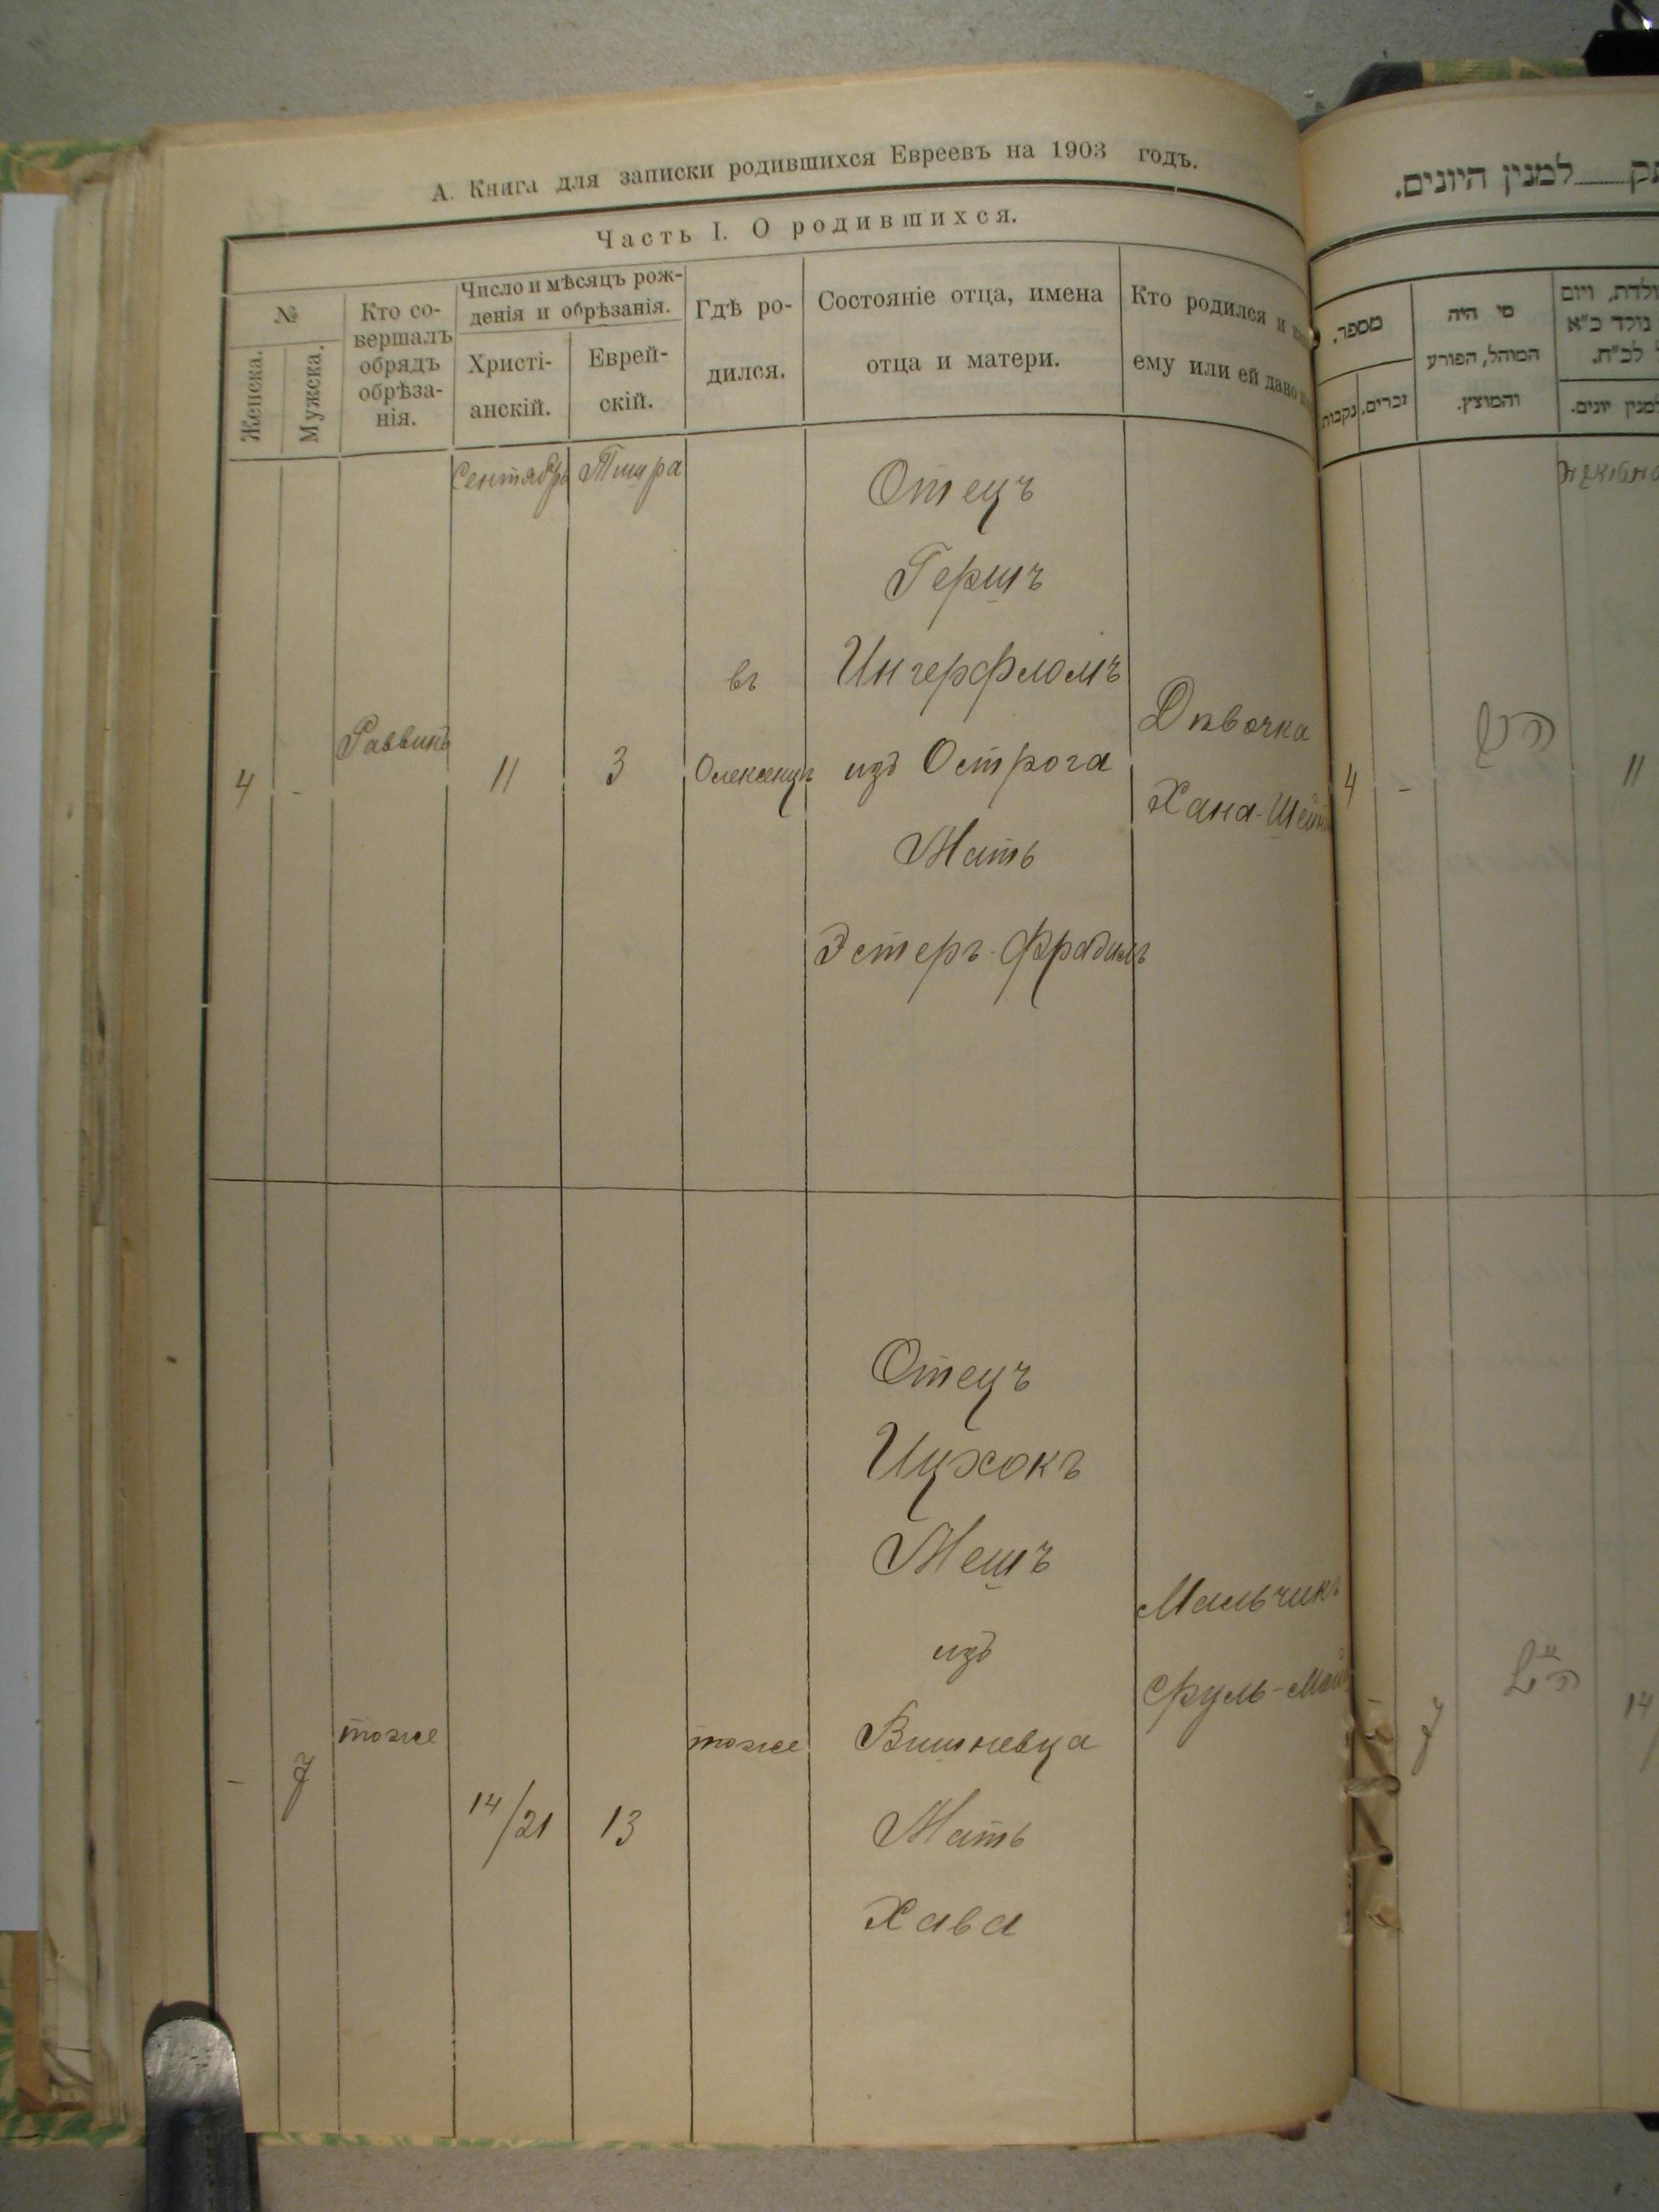 А. Книга для записки родившихся Евреевъ на 1903 годъ.
Часть I. О родившихся.
№
Женска.
Мужска.
Кто со-
вершалъ
обрядъ
обрѣза-
нія.
Число и мѣсяцъ рож-
денія и обрѣзанія.
Христі-
анскій.
Еврей-
скій.
Гдѣ ро-
дился.
Состояніе отца, имена
отца и матери.
Кто родился и
ему или ей дано
Сентябрь
Тишра
4
-
Раввинъ
11
3
въ
Олексенцъ
Отецъ
Гершъ
Ингерфломъ
изъ Острога
Мать
Эстеръ-Фрадиль
Дѣвочка
Хана-
-
7
тоже
14/21
13
тоже
Отецъ
Ицхокъ
Мешъ
изъ
Вишневца
Мать
Хава
Мальчикъ
Сруль-
למנין היונים.
מספר.
נקבות
זכרים.
מי היה
המוהל, הפורע
והמוצץ.
ויום
נולד כ"א
לכ"ת.
למנין יונים.
4
-
11
-
7
14